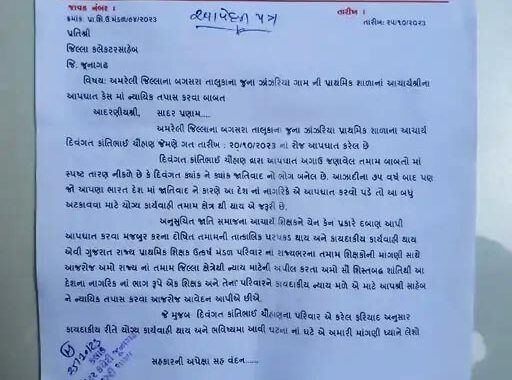 જાવક નંબર :
તારીખ :
ક્રમાંક: પ્રા.શિ.ઉ મંડળ/૦૪/૨૦૨૩
આવેદન પત્ર
તારીખ: ૨૫/૧૦/૨૦૨૩
પ્રતિશ્રી
જિલ્લા કલેક્ટરસાહેબ
જિ. જુનાગઢ
વિષય: અમરેલી જિલ્લાના બગસરા તાલુકાના જુના ઝાંઝરિયા ગામ ની પ્રાથમિક શાળાનાં આચાર્યશ્રીના
આપઘાત કેસ માં ન્યાયિક તપાસ કરવા બાબત
આદરણીયશ્રી, સાદર પ્રણામ....
અમરેલી જિલ્લાના બગસરા તાલુકાના જુના ઝાંઝરિયા પ્રાથમિક શાળાના આચાર્ય
દિવંગત કાંતિભાઈ ચૌહાણ જેમણે ગત તારીખ : ૨૦/૧૦/૨૦૨૩ નાં રોજ આપઘાત કરેલ છે
દિવંગત કાંતિભાઈ ચૌહાણ દ્વારા આપઘાત અગાઉ જણાવેલ તમામ બાબતો માં
સ્પષ્ટ તારણ નીકળે છે કે દિવંગત ક્યાંક ને ક્યાંક જાતિવાદ નો ભોગ બનેલ છે. આઝાદીના ૭૫ વર્ષ બાદ પણ
જો આપણા ભારત દેશ માં જાતિવાદ ને કારણે આ દેશ નાં નાગરિકે એ આપઘાત કરવો પડે તો આ બધું
અટકાવવા માટે યોગ્ય કાર્યવાહી તમામ ક્ષેત્ર થી થાય એ જરૂરી છે.
અનુસુચિત જાતિ સમાજના આચાર્ય શિક્ષકને યેન કેન પ્રકારે દબાણ આપી
આપઘાત કરવા મજબુર કરના દોષિત તમામની તાત્કાલિક ધરપકડ થાય અને કાયદાકીય કાર્યવાહી થાય
એવી ગુજરાત રાજ્ય પ્રાથમિક શિક્ષક ઉત્કર્ષ મંડળ પરિવાર નાં રાજ્યભરના તમામ શિક્ષકોની માંગણી સાથે
આજરોજ અમો રાજ્ય નાં તમામ જિલ્લા ક્ષેત્રેથી ન્યાય માટેની અપીલ કરતા અમો સૌ શિસ્તબદ્ધ શાંતિથી આ
દેશના નાગરિક નાં ભાગ રૂપે એક શિક્ષક અને તેના પરિવારને કાયદાકીય ન્યાય મળે એ માટે આપશ્રી સાહેબ
ને ન્યાયિક તપાસ કરવા આજરોજ આવેદન આપીએ છીએ.
જે મુજબ દિવંગત કાંતિભાઈ ચૌહાણના પરિવાર એ કરેલ ફરિયાદ અનુસાર
કાયદાકીય રીતે યોગ્ય કાર્યવાહી થાય અને ભવિષ્યમાં આવી ઘટના નાં ઘટે એ અમારી માંગણી ધ્યાને લેશો
સહકારની અપેક્ષા સહ વંદન......
25/10/23